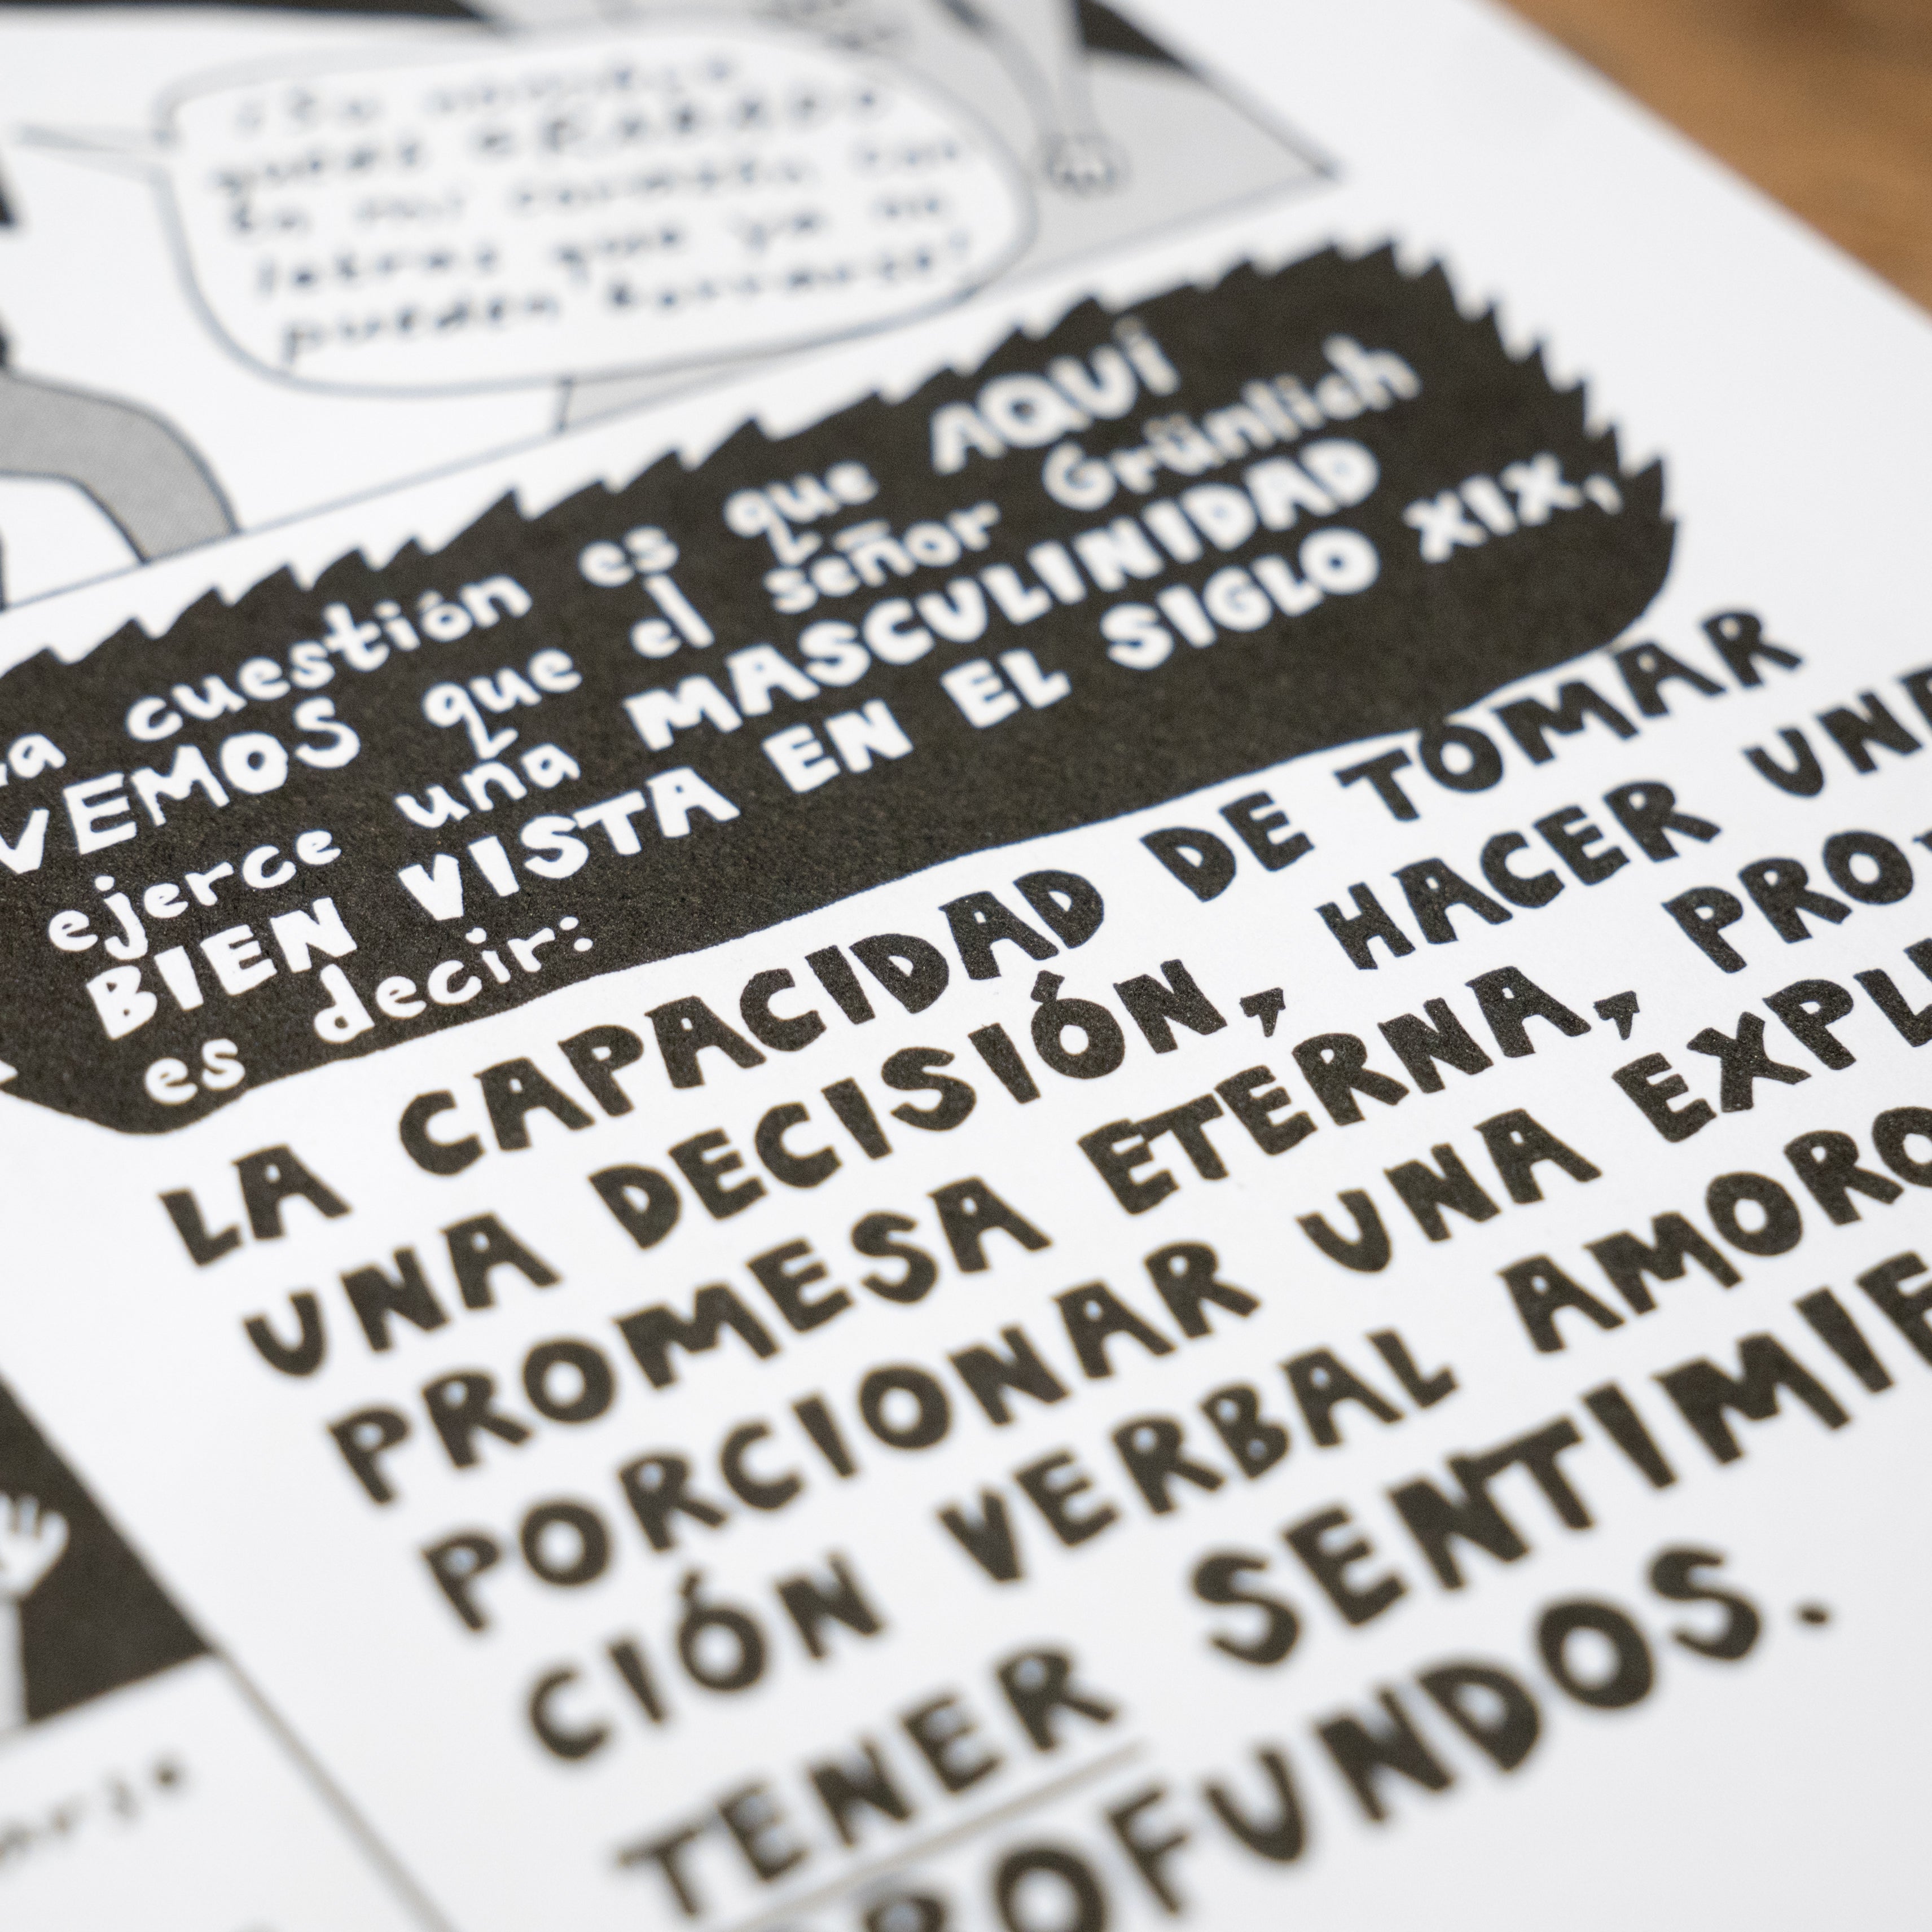 GRABADO
en mi con
letras que ya no
pueden borrarse!
a cuestión es que AQUÍ
VEMOS que el señor Grünlich
ejerce una MASCULINIDAD
BIEN VISTA EN EL SIGLO XIX,
es decir:
LA CAPACIDAD DE TOMAR
UNA DECISIÓN, HACER UNA
PROMESA ETERNA, PRO-
PORCIONAR UNA EXPLI
CIÓN VERBAL AMORO
TENER SENTIMIE
PROFUNDOS.